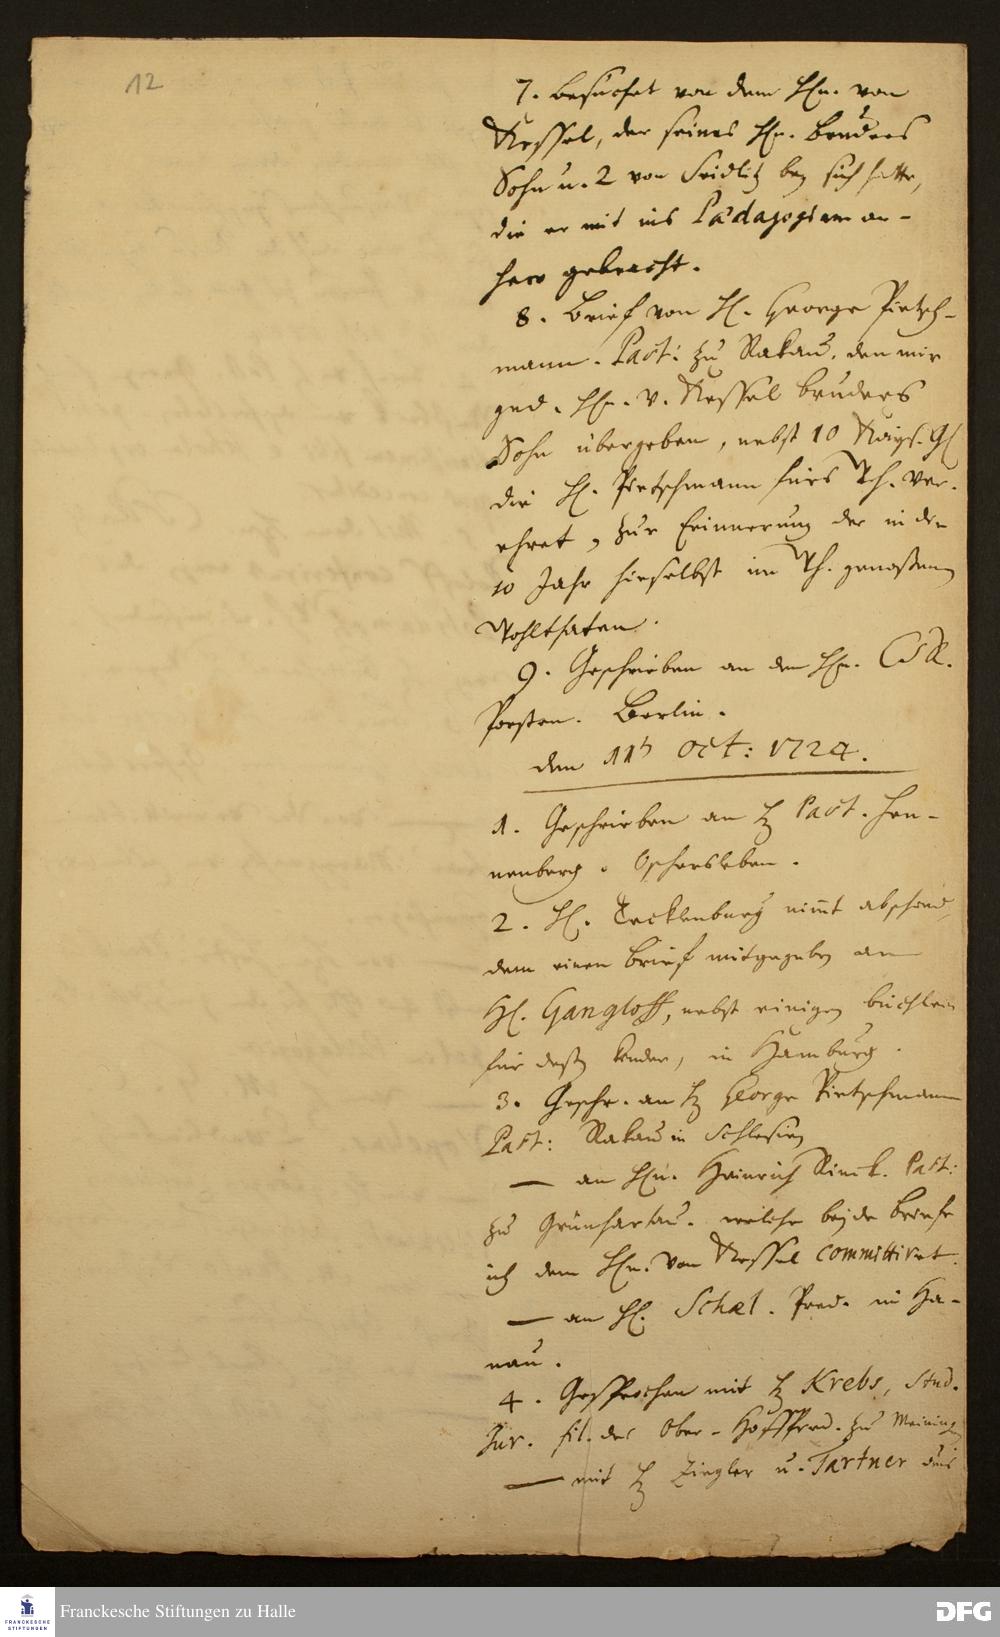 12
7. besuchet von dem Hn. von
Kessel, der seines Hn. Bruders
Sohn u. 2 von Seidlitz bey sich hatte,
die er mit ins Pædagogium an-
hero gebracht.
8. Brief von H. George Pietsch-
mann. Past: zu Rakau, den mir
ged. Hn. v. Kessel bruders
Sohn übergeben, nebst 10 Kays. Gl
die H. Pietschmann fürs Wh. ver-
ehret, zur Erinnerung der in den
10 Jahr hieselbst im Wh. genoßenen
Wohlthaten.
9. Geschrieben an den Hn. CR.
Porsten. Berlin.
den 11ten Oct: 1724.
1. Geschrieben an H Past. Hen-
nenberg. Oschersleben.
2. H. Tecklenburg nimt abschied,
dem einen brief mitgegeben an
H. Gangloff, nebst einigen büchlein
für deßen Kinder, in Hamburg.
3. Geschr. an H George Pietschmann
Past: Rakau in Schlesien
— an Hn. Heinrich Rinck. Past:
zu Grünhartau. welche beyde briefe
ich dem Hn. von Kessel committiret.
— an H. Schæl. Pred. in Ha-
nau.
4. Gesprochen mit H Krebs, Stud.
Jur. fil. des Ober-Hoffpred. zu Meiningen
— mit H Ziegler u. Tartner
Franckesche Stiftungen zu Halle
FRANCKESCHE
STIFTUNGEN
DFG